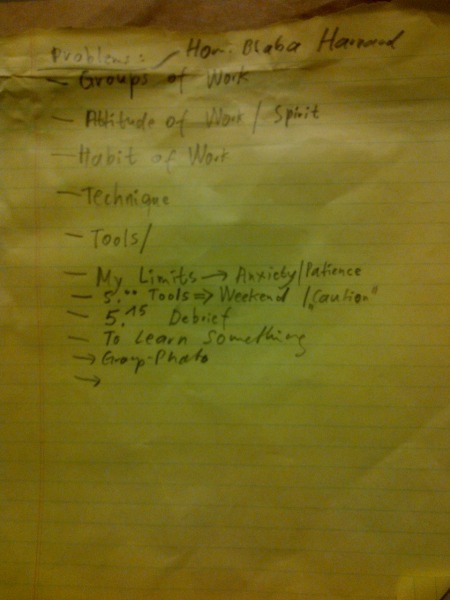 Problems: / Hon. Blaba Harward
- Groups of Work
- Attitude of Work / Spirit
- Habit of Work
- Technique
- Tools/
- My Limits → Anxiety/Patience
- 5.°° Tools => Weekend / "Caution"
- 5.15 Debrief
- To Learn Something
→ Group-Photo
→